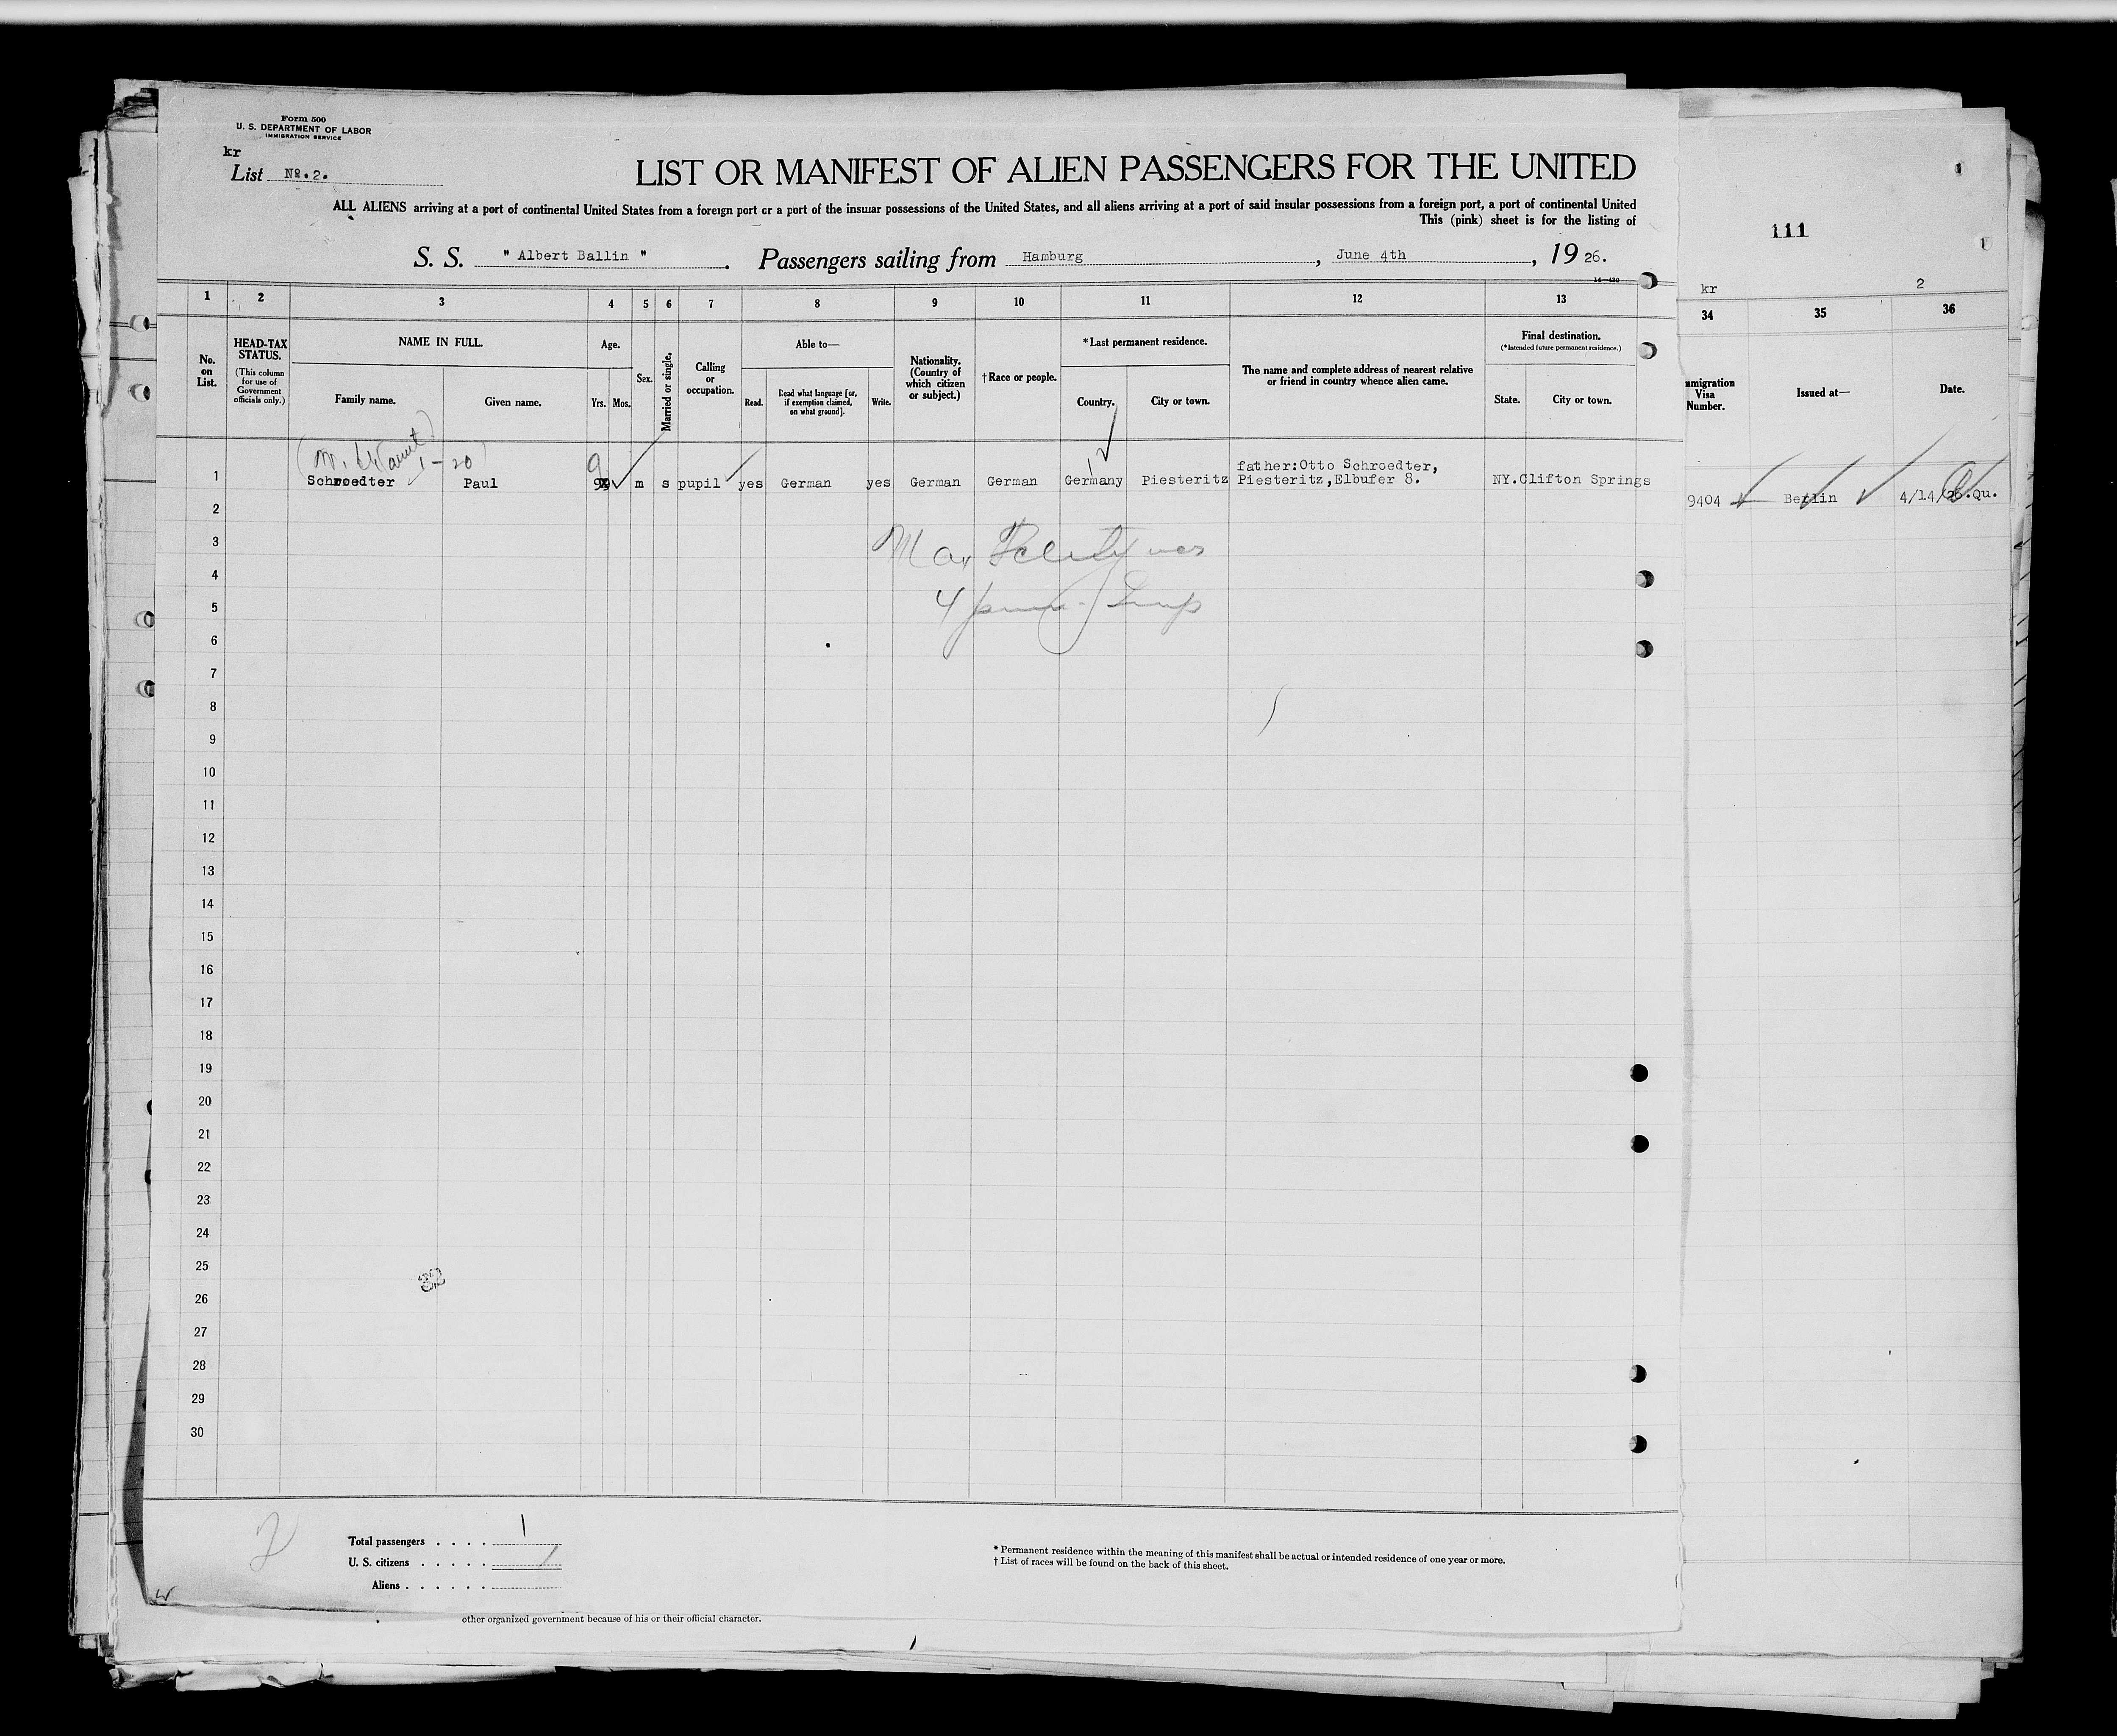 Form 500
U. S. DEPARTMENT OF LABOR
IMMIGRATION SERVICE
kr
List No. 2.
LIST OR MANIFEST OF ALIEN PASSENGERS FOR THE UNITED
ALL ALIENS arriving at a port of continental United States from a foreign port or a port of the insular possessions of the United States, and all aliens arriving at a port of said insular possessions from a foreign port, a port of continental United
This (pink) sheet is for the listing of
S. S. " Albert Ballin ". Passengers sailing from Hamburg, June 4th, 1926.
111
kr 2
1 2 3 4 5 6 7 8 9 10 11 12 13
34 35 36
No. on List.
HEAD-TAX STATUS. (This column for use of Government officials only.)
NAME IN FULL.
Family name. Given name.
Age.
Yrs. Mos.
Sex.
Married or single.
Calling or occupation.
Able to—
Read. Read what language [or, if exemption claimed, on what ground]. Write.
Nationality. (Country of which citizen or subject.)
†Race or people.
*Last permanent residence.
Country. City or town.
The name and complete address of nearest relative or friend in country whence alien came.
Final destination.
(*Intended future permanent residence.)
State. City or town.
mmigration Visa Number.
Issued at—
Date.
1 Schroedter Paul 9 m s pupil yes German yes German German Germany Piesteritz father:Otto Schroedter, Piesteritz,Elbufer 8. NY. Clifton Springs
9404 Berlin 4/14/26.Qu.
2
3
4
5
6
7
8
9
10
11
12
13
14
15
16
17
18
19
20
21
22
23
24
25
32
26
27
28
29
30
2
Total passengers . . . . 1
U. S. citizens . . . . .
Aliens . . . . . .
* Permanent residence within the meaning of this manifest shall be actual or intended residence of one year or more.
† List of races will be found on the back of this sheet.
other organized government because of his or their official character.